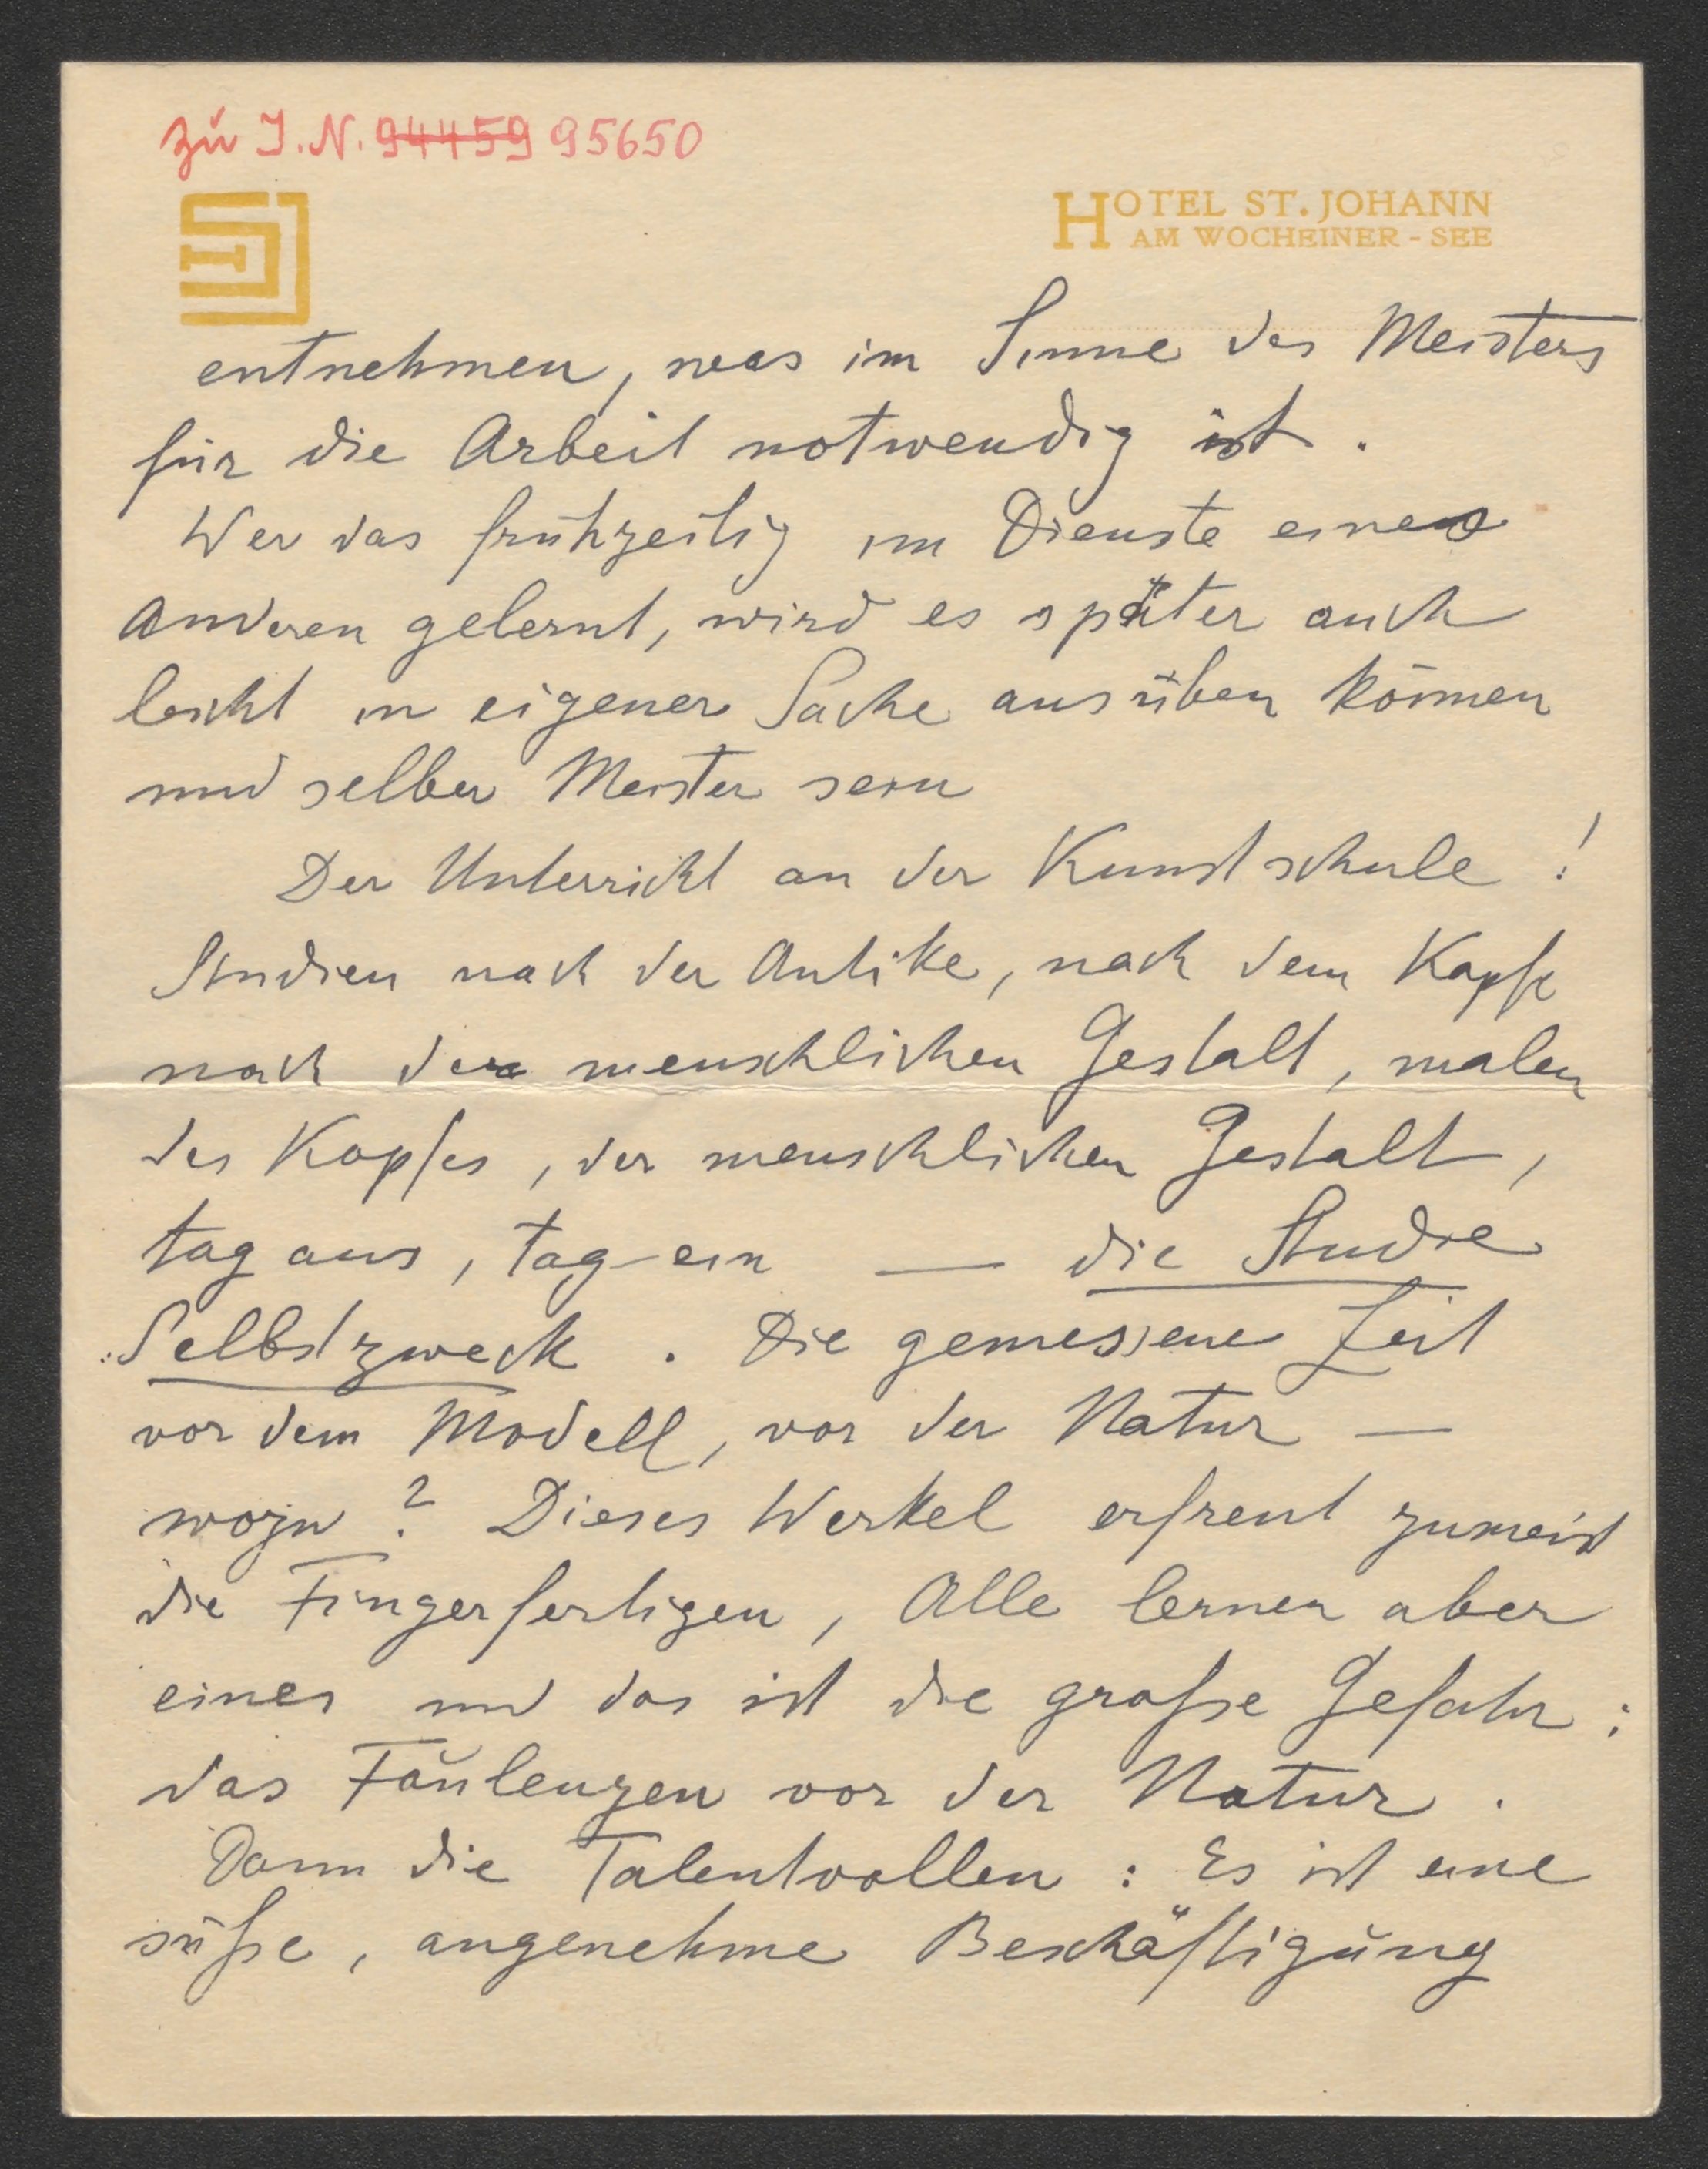 zu I.N. 94459 95650
HOTEL ST. JOHANN
AM WOCHEINER - SEE
entnehmen, was im Sinne des Meisters
für die Arbeit notwendig ist.
Wer das frühzeitig im Dienste eines
Anderen gelernt, wird es später auch
leicht in eigener Sache ausüben können
und selber Meister sein
Der Unterricht an der Kunstschule !
Studien nach der Antike, nach dem Kopfe
nach der menschlichen Gestalt, malen
des Kopfes, der menschlichen Gestalt,
tag aus, tag-ein — die Studie
Selbstzweck. Die gemessene Zeit
vor dem Modell, vor der Natur —
wozu ? Dieses Werkel erfreut zumeist
die Fingerfertigen, Alle lernen aber
eines und das ist die große Gefahr :
das Faulenzen vor der Natur.
Dann die Talentvollen : Es ist eine
süße, angenehme Beschäftigung